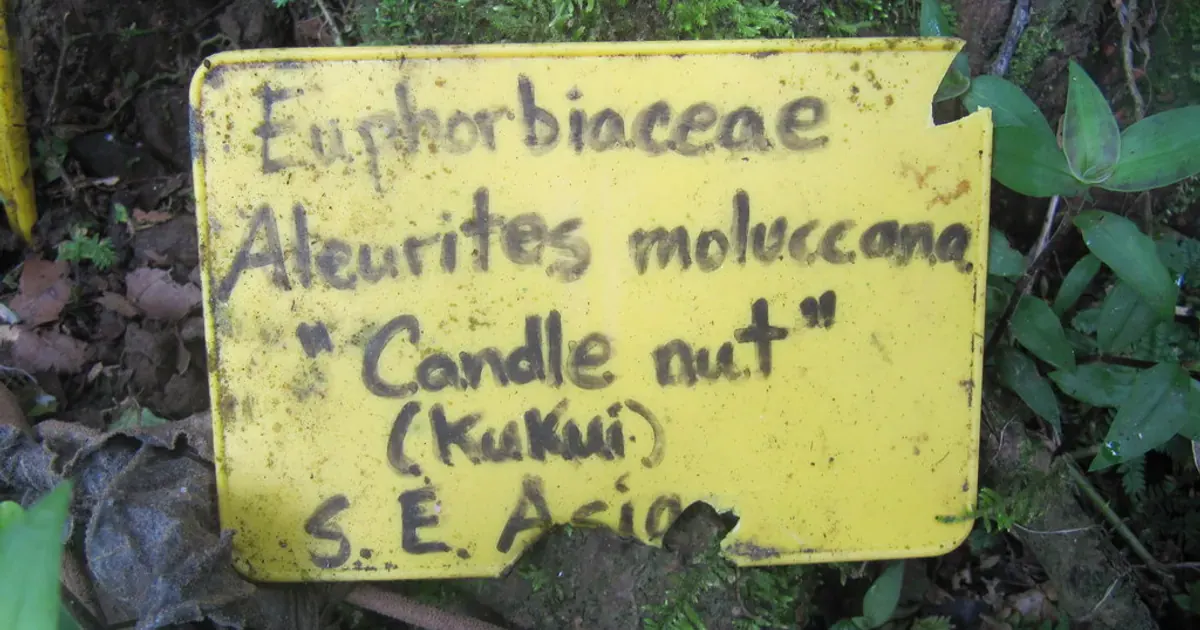 Euphorbiaceae
Aleurites moluccana
"Candle nut"
(Kukui)
S. E. Asia